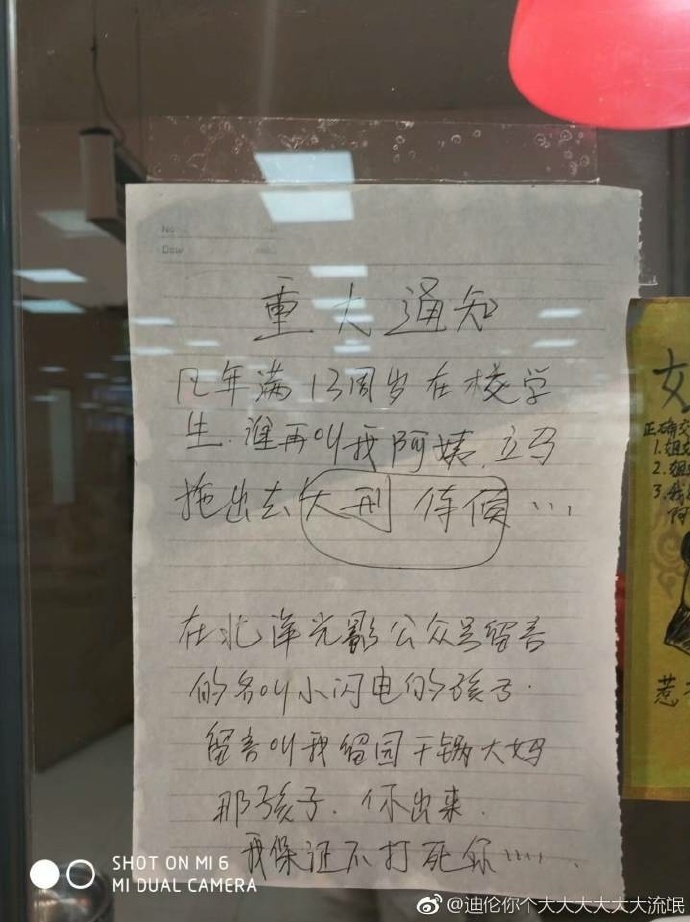 No
Date
重大通知
凡年满13周岁在校学
生.谁再叫我阿姨.立马
拖出去大刑侍候...
在北洋光影公众号留言
的名叫小闪电的孩子.
留言叫我留园干锅大妈
那孩子.你出来.
我保证不打死你......
女
正确交
1.姐
2.姐
3.我
阿
惹
SHOT ON MI 6
MI DUAL CAMERA
@迪伦你个大大大大大大流氓